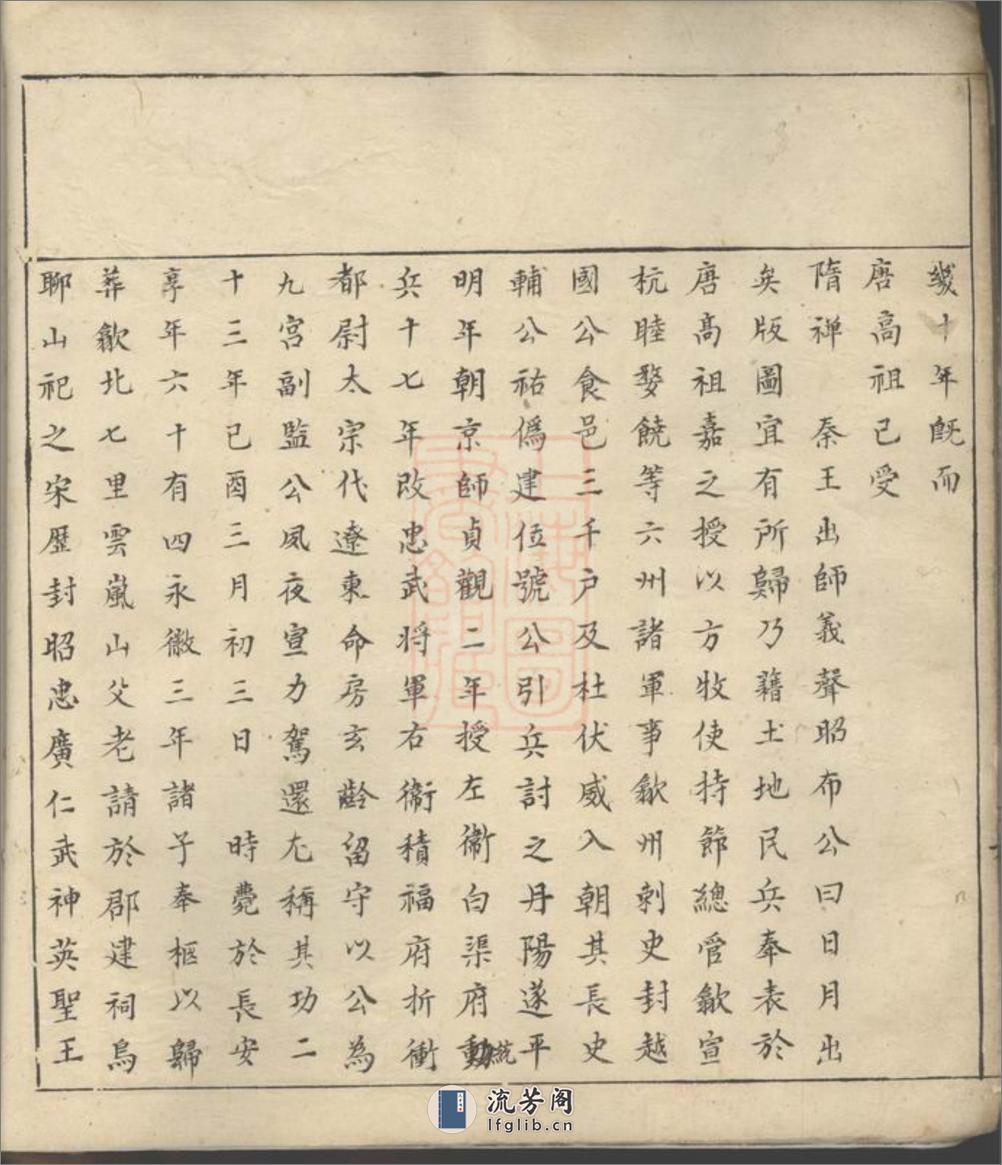 幾十年既而
唐高祖已受
隋禅　秦王出師義聲昭布公曰日月出
矣版圖宜有所歸乃籍土地民兵奉表於
唐高祖嘉之授以方牧使持節總管歙宣
杭睦婺饒等六州諸軍事歙州刺史封越
國公食邑三千户及杜伏威入朝其長史
輔公祐僞建位號公引兵討之丹陽遂平
明年朝京師貞觀二年授左衞白渠府統
兵十七年改忠武将軍右衞積福府折衝
都尉太宗伐遼東命房玄齡留守以公為
九宫副監公夙夜宣力駕還尤稱其功二
十三年己酉三月初三日　時薨於長安
享年六十有四永徽三年諸子奉柩以歸
葬歙北七里雲嵐山父老請於郡建祠烏
聊山祀之宋歷封昭忠廣仁武神英聖王
流芳阁
lfglib.cn